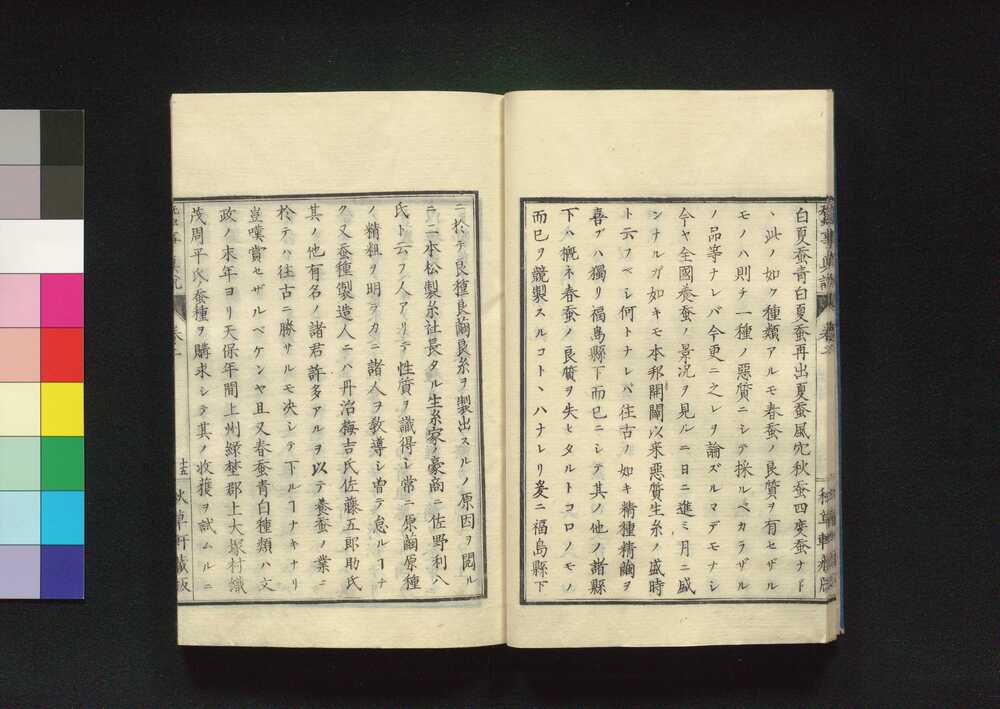 白夏蚕青白夏蚕再出夏蚕風穴秋蚕四変蚕ナド
、此ノ如ク種類アルモ春蚕ノ良質ヲ有セザル
モノハ則チ一種ノ悪質ニシテ採ルベカラザル
ノ品等ナレバ今更ニ之レヲ論ズルマデモナシ
今ヤ全國養蚕ノ景况ヲ見ルニ日ニ進ミ月ニ盛
ンナルガ如キモ本邦開闢以来悪質生糸ノ盛時
ト云フベシ何トナレバ往古ノ如キ精種精繭ヲ
喜ブハ獨リ福島縣下而已ニシテ其ノ他ノ諸縣
下ハ概ネ春蚕ノ良質ヲ失ヒタルトコロノモノ
而已ヲ競製スルコトヽハナレリ爰ニ福島縣下
ニ於テ良種良繭良糸ヲ製出スルノ原因ヲ閲ル
ニ二本松製糸社長タル生糸家ノ豪商ニ佐野利八
氏ト云フ人アリテ性質ヲ識得シ常ニ原繭原種
ノ精粗ヲ明ラカニ諸人ヲ教導シ曽テ怠ルヿナ
ク又蚕種製造人ニハ丹治梅吉氏佐藤五郎助氏
其ノ他有名ノ諸君許多アルヲ以テ養蚕ノ業ニ
於テハ往古ニ勝サルモ决シテ下ルヿナキナリ
豈嘆賞セザルベケンヤ且又春蚕青白種類ハ文
政ノ末年ヨリ天保年間上州緑埜郡上大塚村織
茂周平氏蚕種ヲ購求シテ其ノ收獲ヲ試ムルニ
卷之
十五
秋草軒蔵版